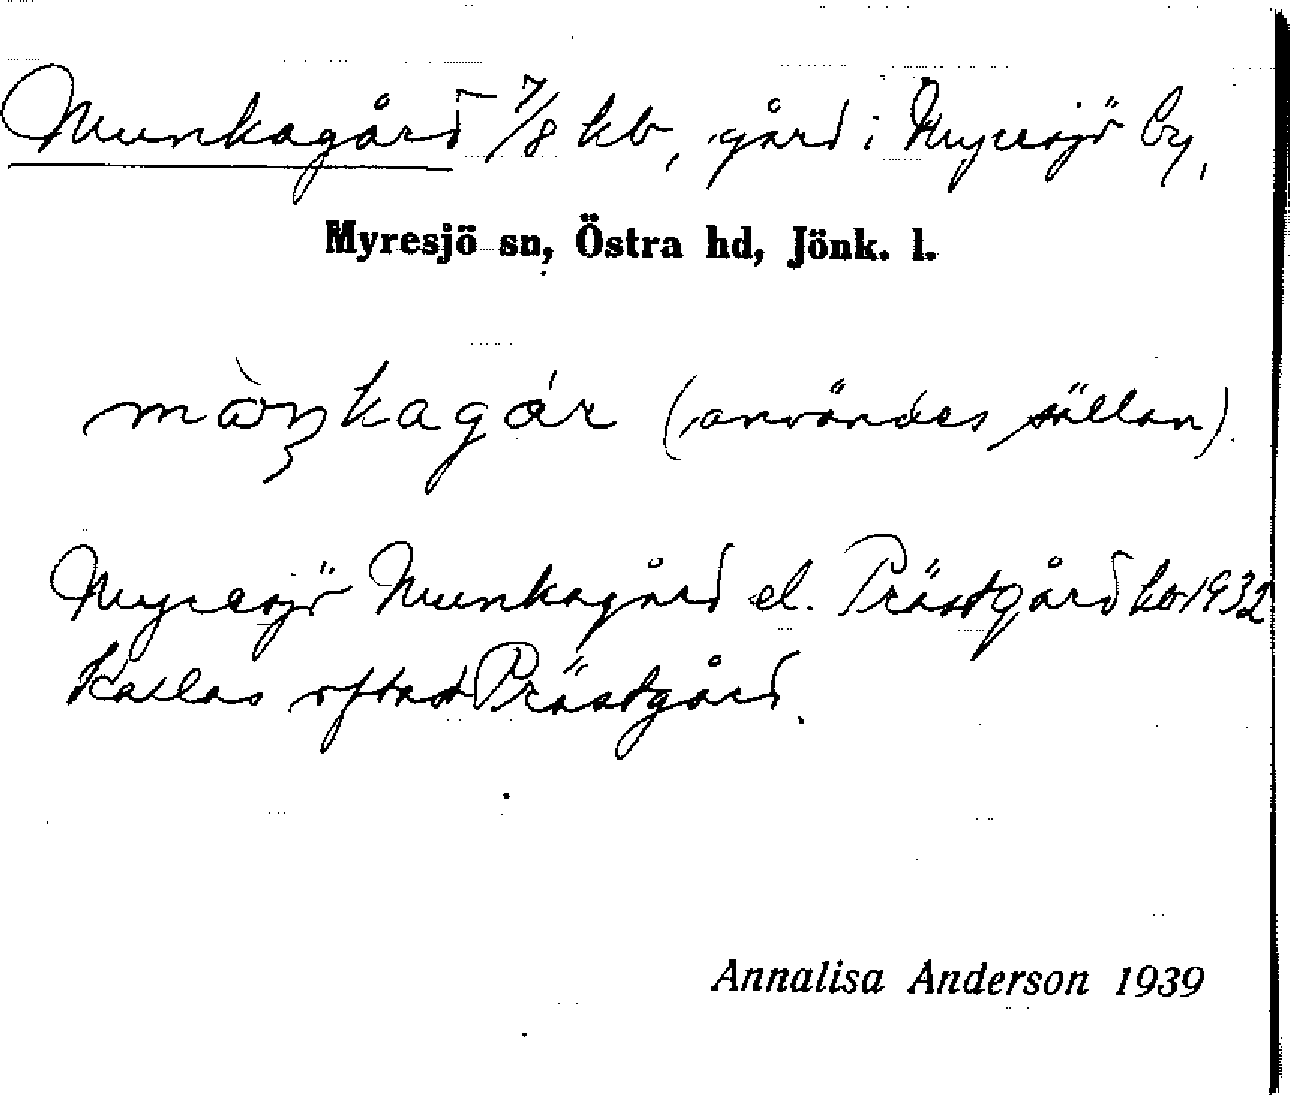 Munkagård 7/8 hb, gård i Myresjö by,
Myresjö sn, Östra hd, Jönk. l.
(användes sällan)
Myresjö Munkagård el. Prästgård 1932
kallas oftast Prästgård.
Annalisa Anderson 1939